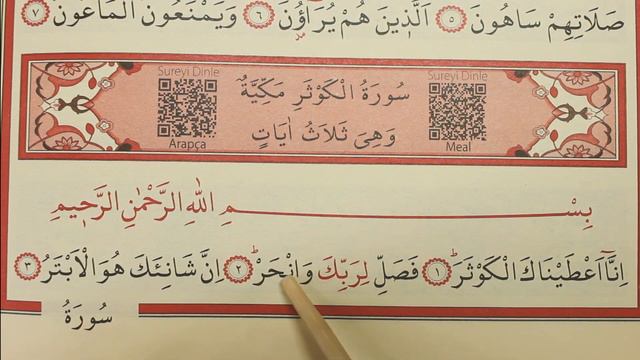 صَلَاتِهِمْ سَاهُونَ ٥ اَلَّذِينَ هُمْ يُرَاؤُنَ ٦ وَيَمْنَعُونَ الْمَاعُونَ ٧
Sureyi Dinle
Sureyi Dinle
سُورَةُ الْكَوْثَرِ مَكِّيَّةٌ
وَهِىَ ثَلَاثُ اٰيَاتٍ
Arapça
Meal
بِسْمِ اللّٰهِ الرَّحْمٰنِ الرَّحِيمِ
اِنَّٓا اَعْطَيْنَاكَ الْكَوْثَرَ ١ فَصَلِّ لِرَبِّكَ وَانْحَرْ ٢ اِنَّ شَانِئَكَ هُوَ الْاَبْتَرُ ٣
سُورَةُ